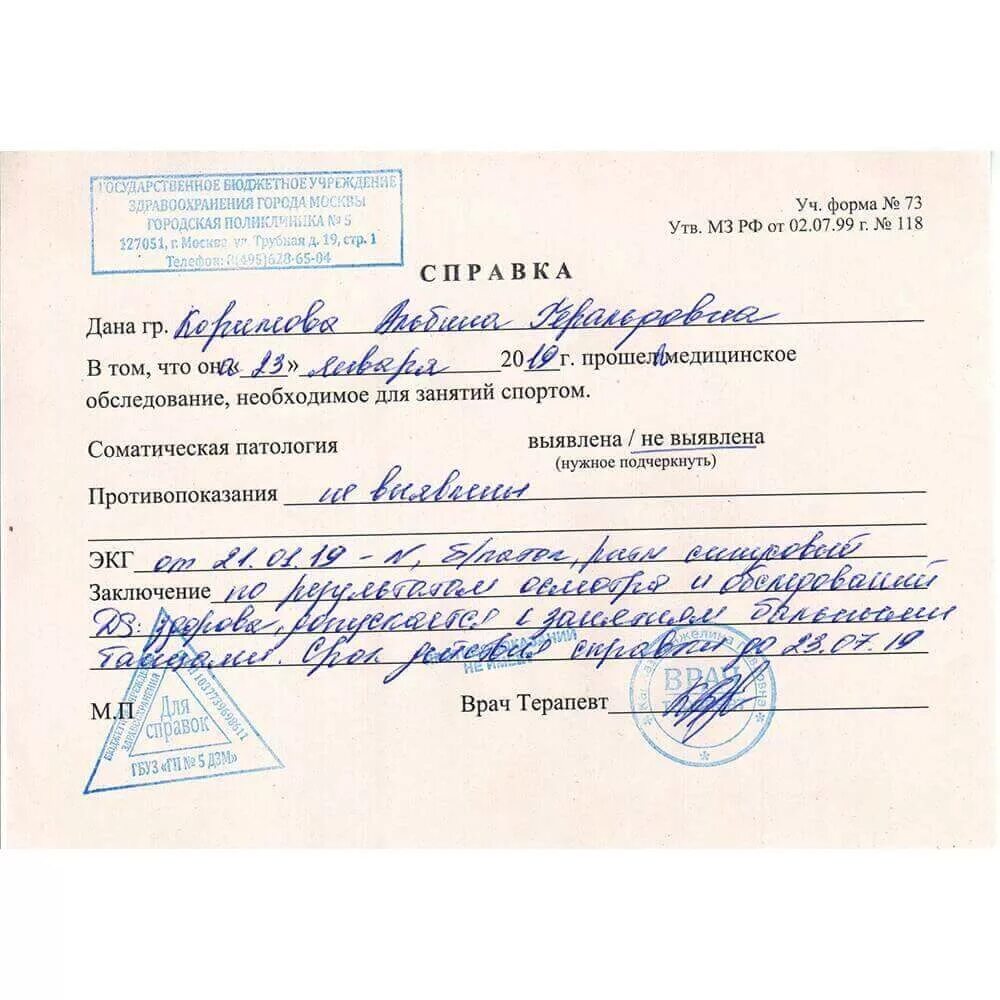 ГОСУДАРСТВЕННОЕ БЮДЖЕТНОЕ УЧРЕЖДЕНИЕ
ЗДРАВООХРАНЕНИЯ ГОРОДА МОСКВЫ
ГОРОДСКАЯ ПОЛИКЛИНИКА № 5
127051, г. Москва ул. Трубная д. 19, стр. 1
Телефон: 8(495)628-65-04
Уч. форма № 73
Утв. МЗ РФ от 02.07.99 г. № 118
СПРАВКА
Дана гр. Каримова Альбина Геральдовна
В том, что она «23» января 2019 г. прошел медицинское
обследование, необходимое для занятий спортом.
Соматическая патология выявлена / не выявлена
(нужное подчеркнуть)
Противопоказания не выявлены
ЭКГ от 21.01.19 - N, б/патол, ритм синусовый
Заключение по результатам осмотра и обследований
DS: здорова, допускается к занятиям бальными
танцами. Срок действия справки до 23.07.19
НЕ ИМЕЕТ
М.П Врач Терапевт
ВРАЧ
Для
справок
ГБУЗ «ГП № 5 ДЗМ»